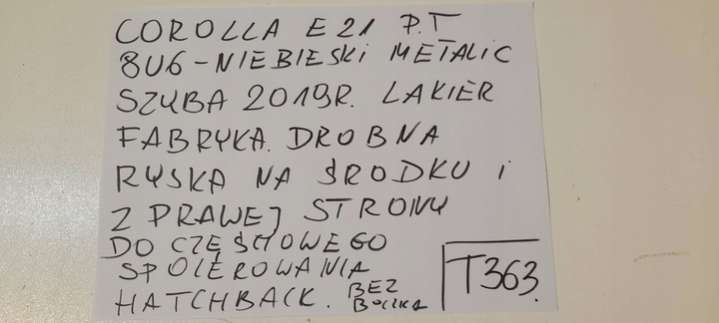 COROLLA E21 P.T
8U6-NIEBIESKI METALIC
SZYBA 2019R. LAKIER
FABRYKA. DROBNA
RYSKA NA ŚRODKU i
Z PRAWEJ STRONY
DO CZĘŚIOWEGO
SPOLEROWANIA
HATCHBACK. BEZ BOCZKA
T363.